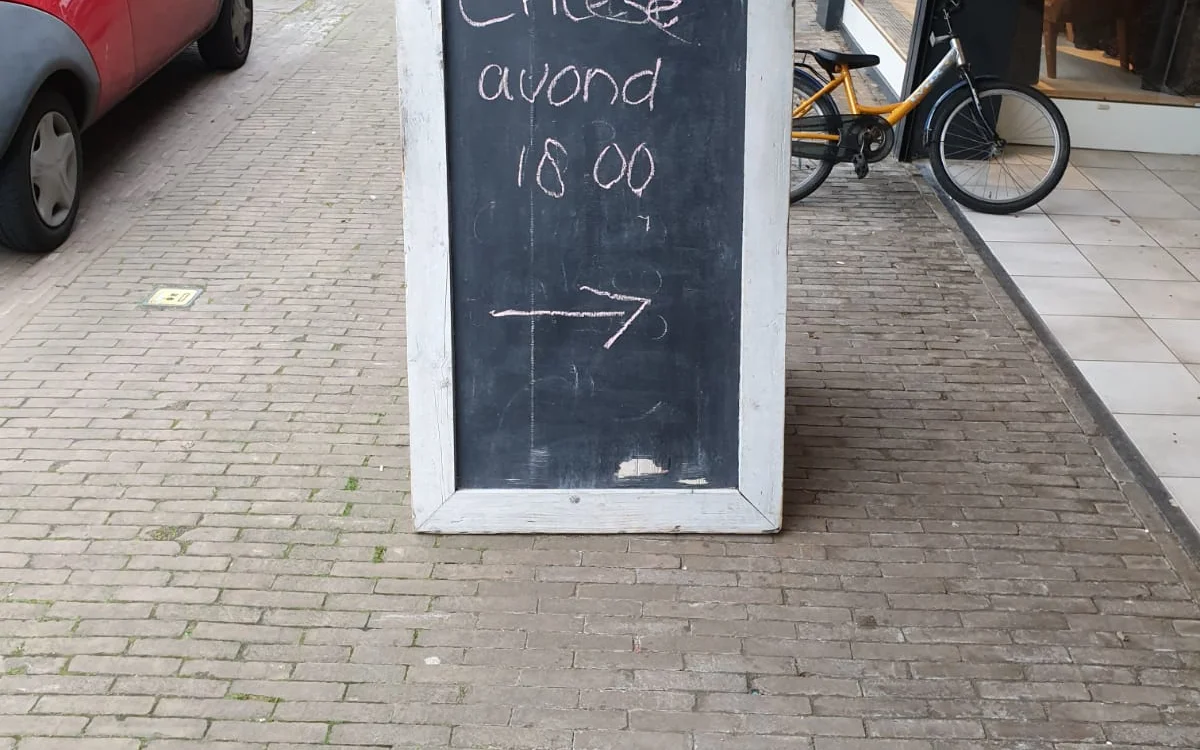 Cheese
avond
18 00